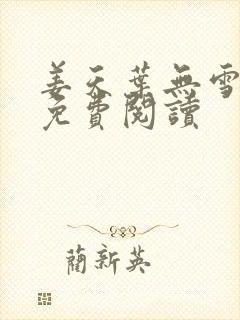 姜天葉無雪
免費閱讀
藺新英